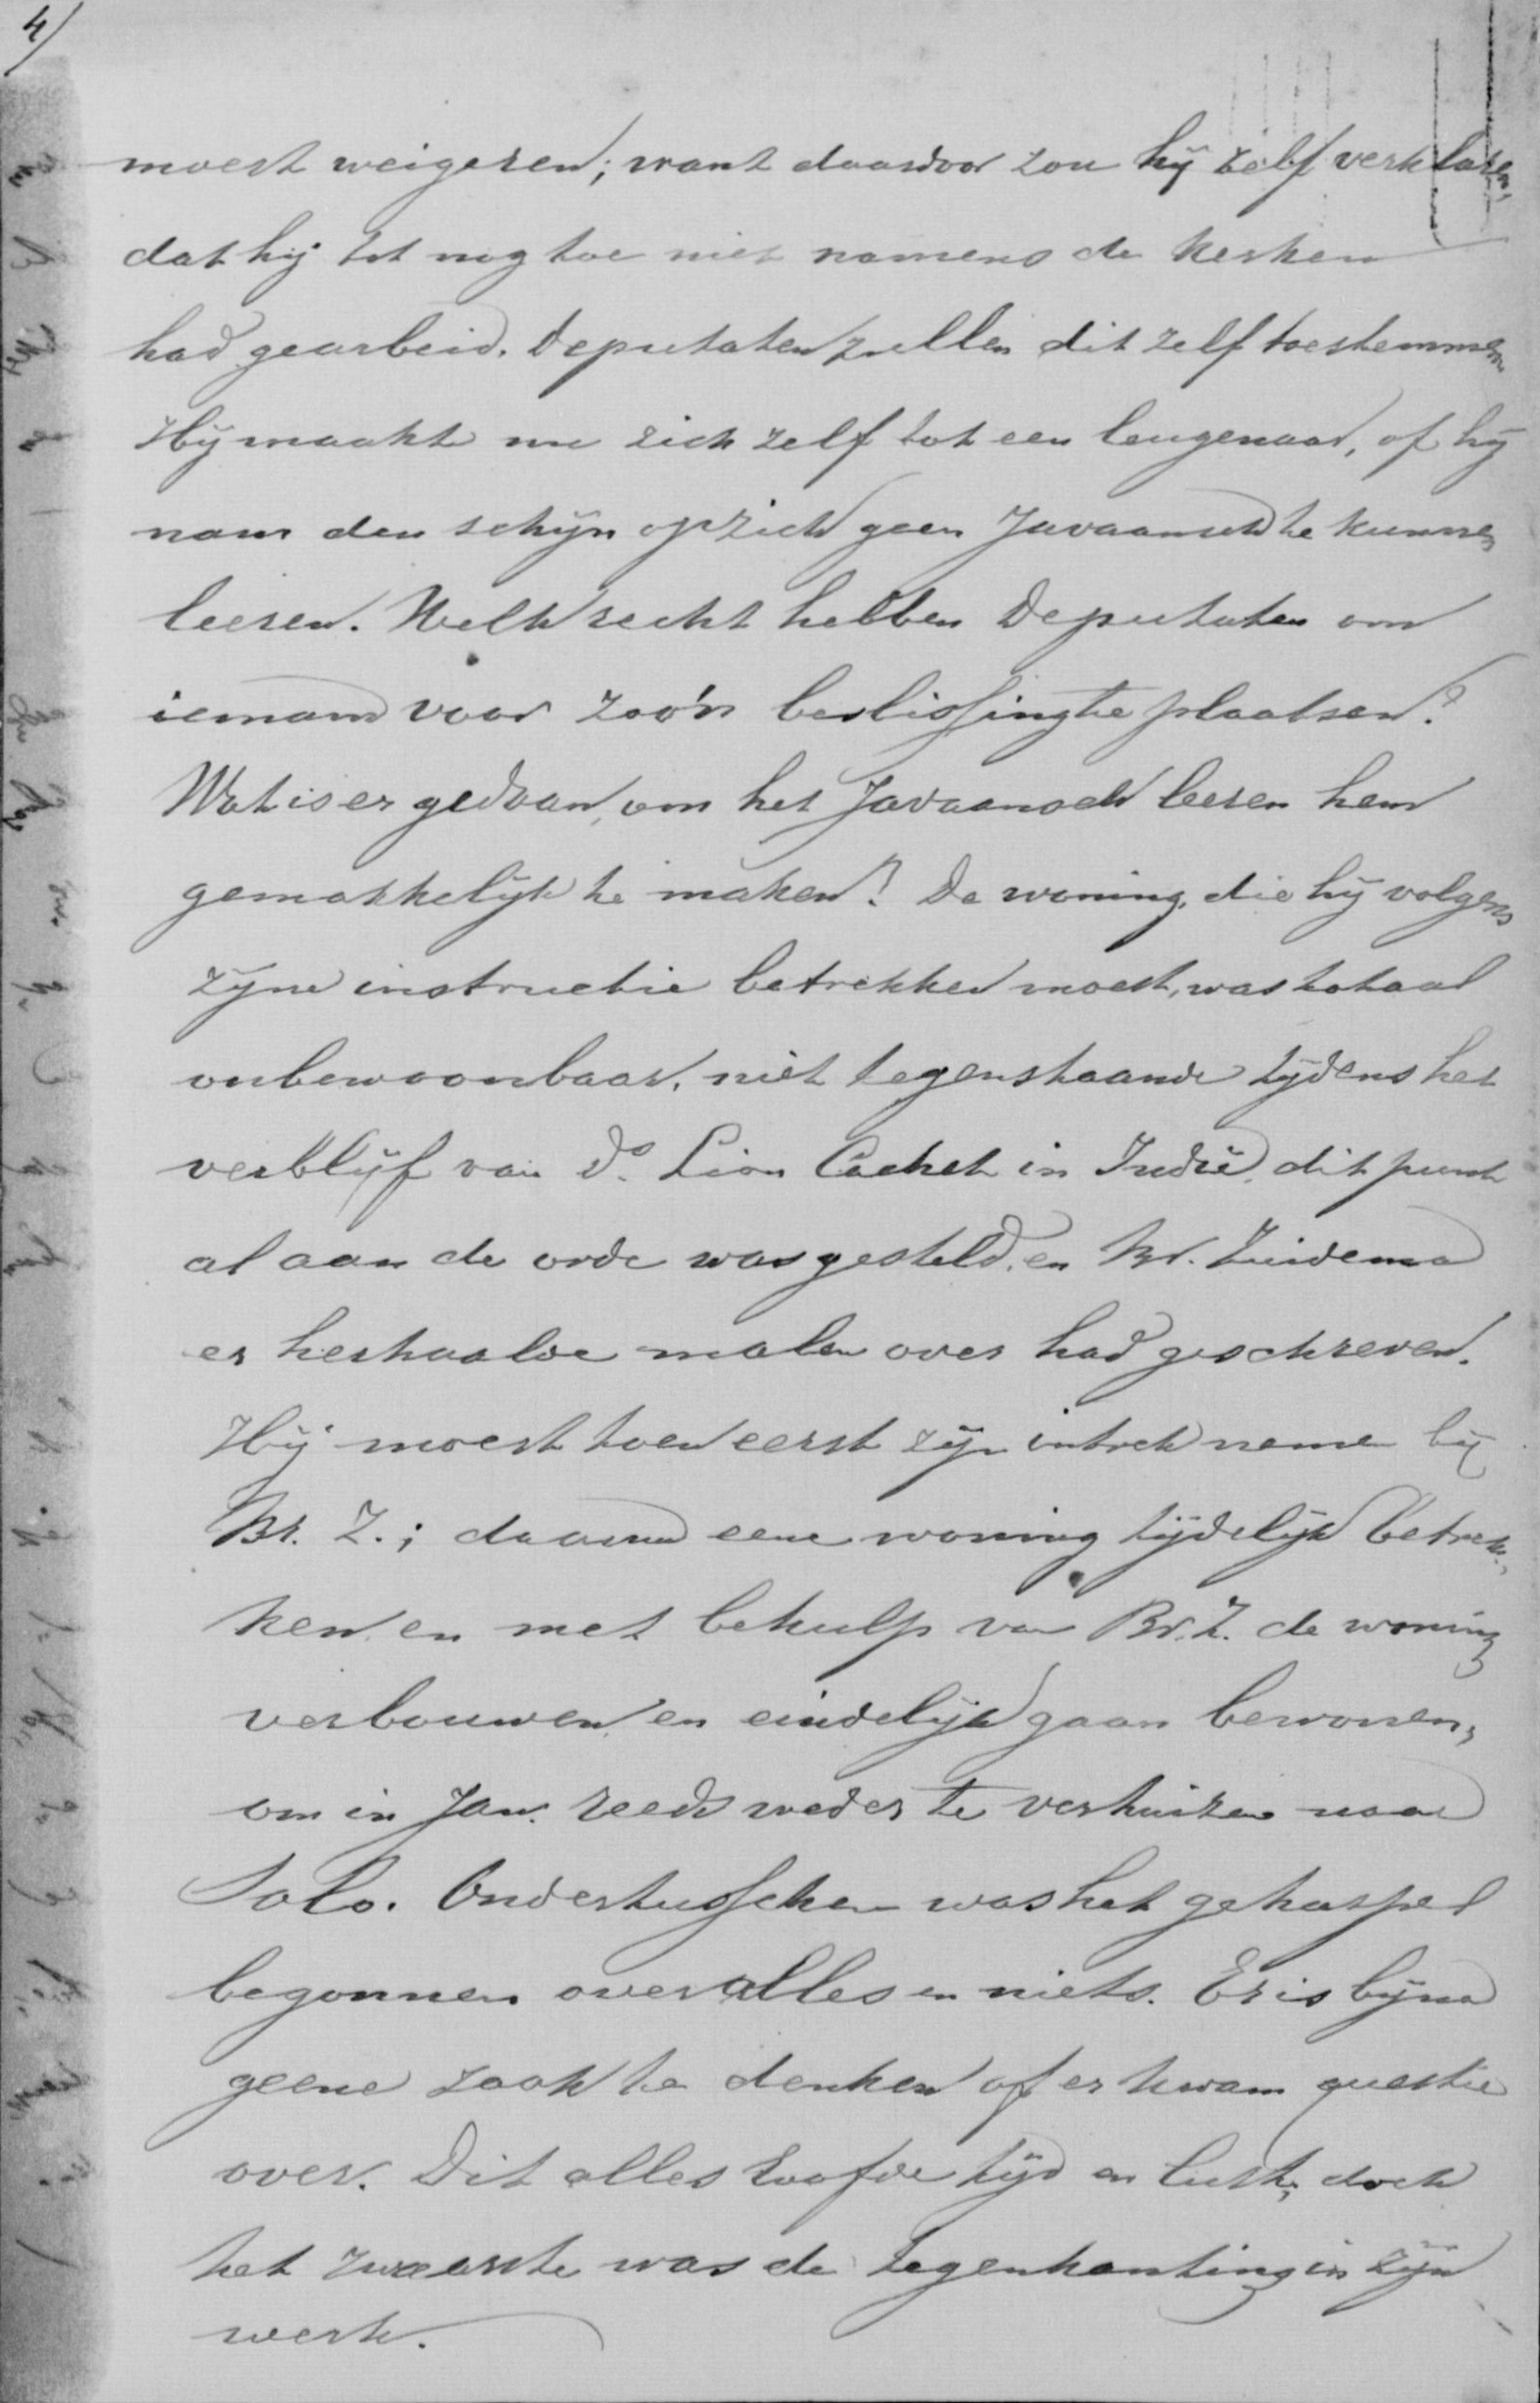 4/
moest weigeren; want daardoor zou hij zelf verklaren,
dat hij tot nog toe niet namens de Kerken
had gearbeid. Deputaten zullen dit zelf toestemmen
Hij maakte nu zich zelf tot een leugenaar, of hij
nam den schijn op zich geen Javaansch te kunnen
leeren. Welk recht hebben Deputaten om
iemand voor zoo'n beslissing te plaatsen?
Wat is er gedaan, om het Javaansch leeren hem
gemakkelijk te maken? De woning, die hij volgens
zijne instructie betrekken moest, was totaal
onbewoonbaar, niet tegenstaande tijdens het
verblijf van Ds. Lion Cachet in Indië, dit punt
al aan de orde was gesteld, en Br. Zuidema
er herhaalde malen over had geschreven.
Hij moest toen eerst zijn intrek nemen bij
Br. Z.; daarna eene woning tijdelijk betrek-
ken, en met behulp van Br. Z. de woning
verbouwen, en eindelijk gaan bewonen,
om in Jan. reeds weder te verhuizen naar
Solo. Ondertusschen was het gehaspel
begonnen over alles en niets. Er is bijna
geene zaak te denken of er kwam questie
over. Dit alles roofde tijd en lust; doch
het zwaarste was de tegenkanting in zijn
werk.